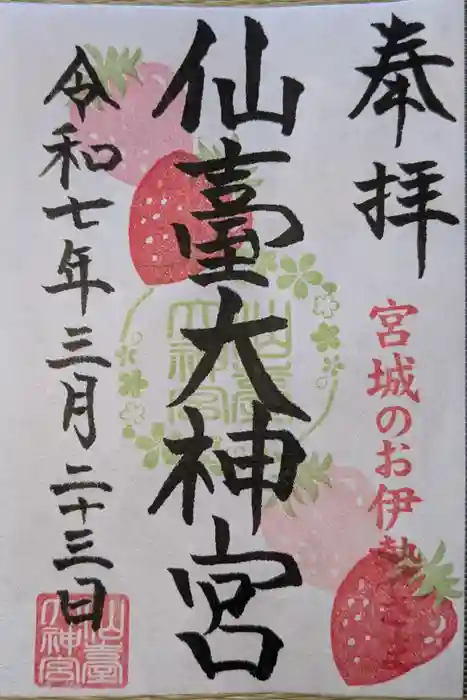 奉拝
宮城のお伊勢さま
仙臺大神宮
令和七年三月二十三日
仙臺
大神宮
仙臺
大神宮